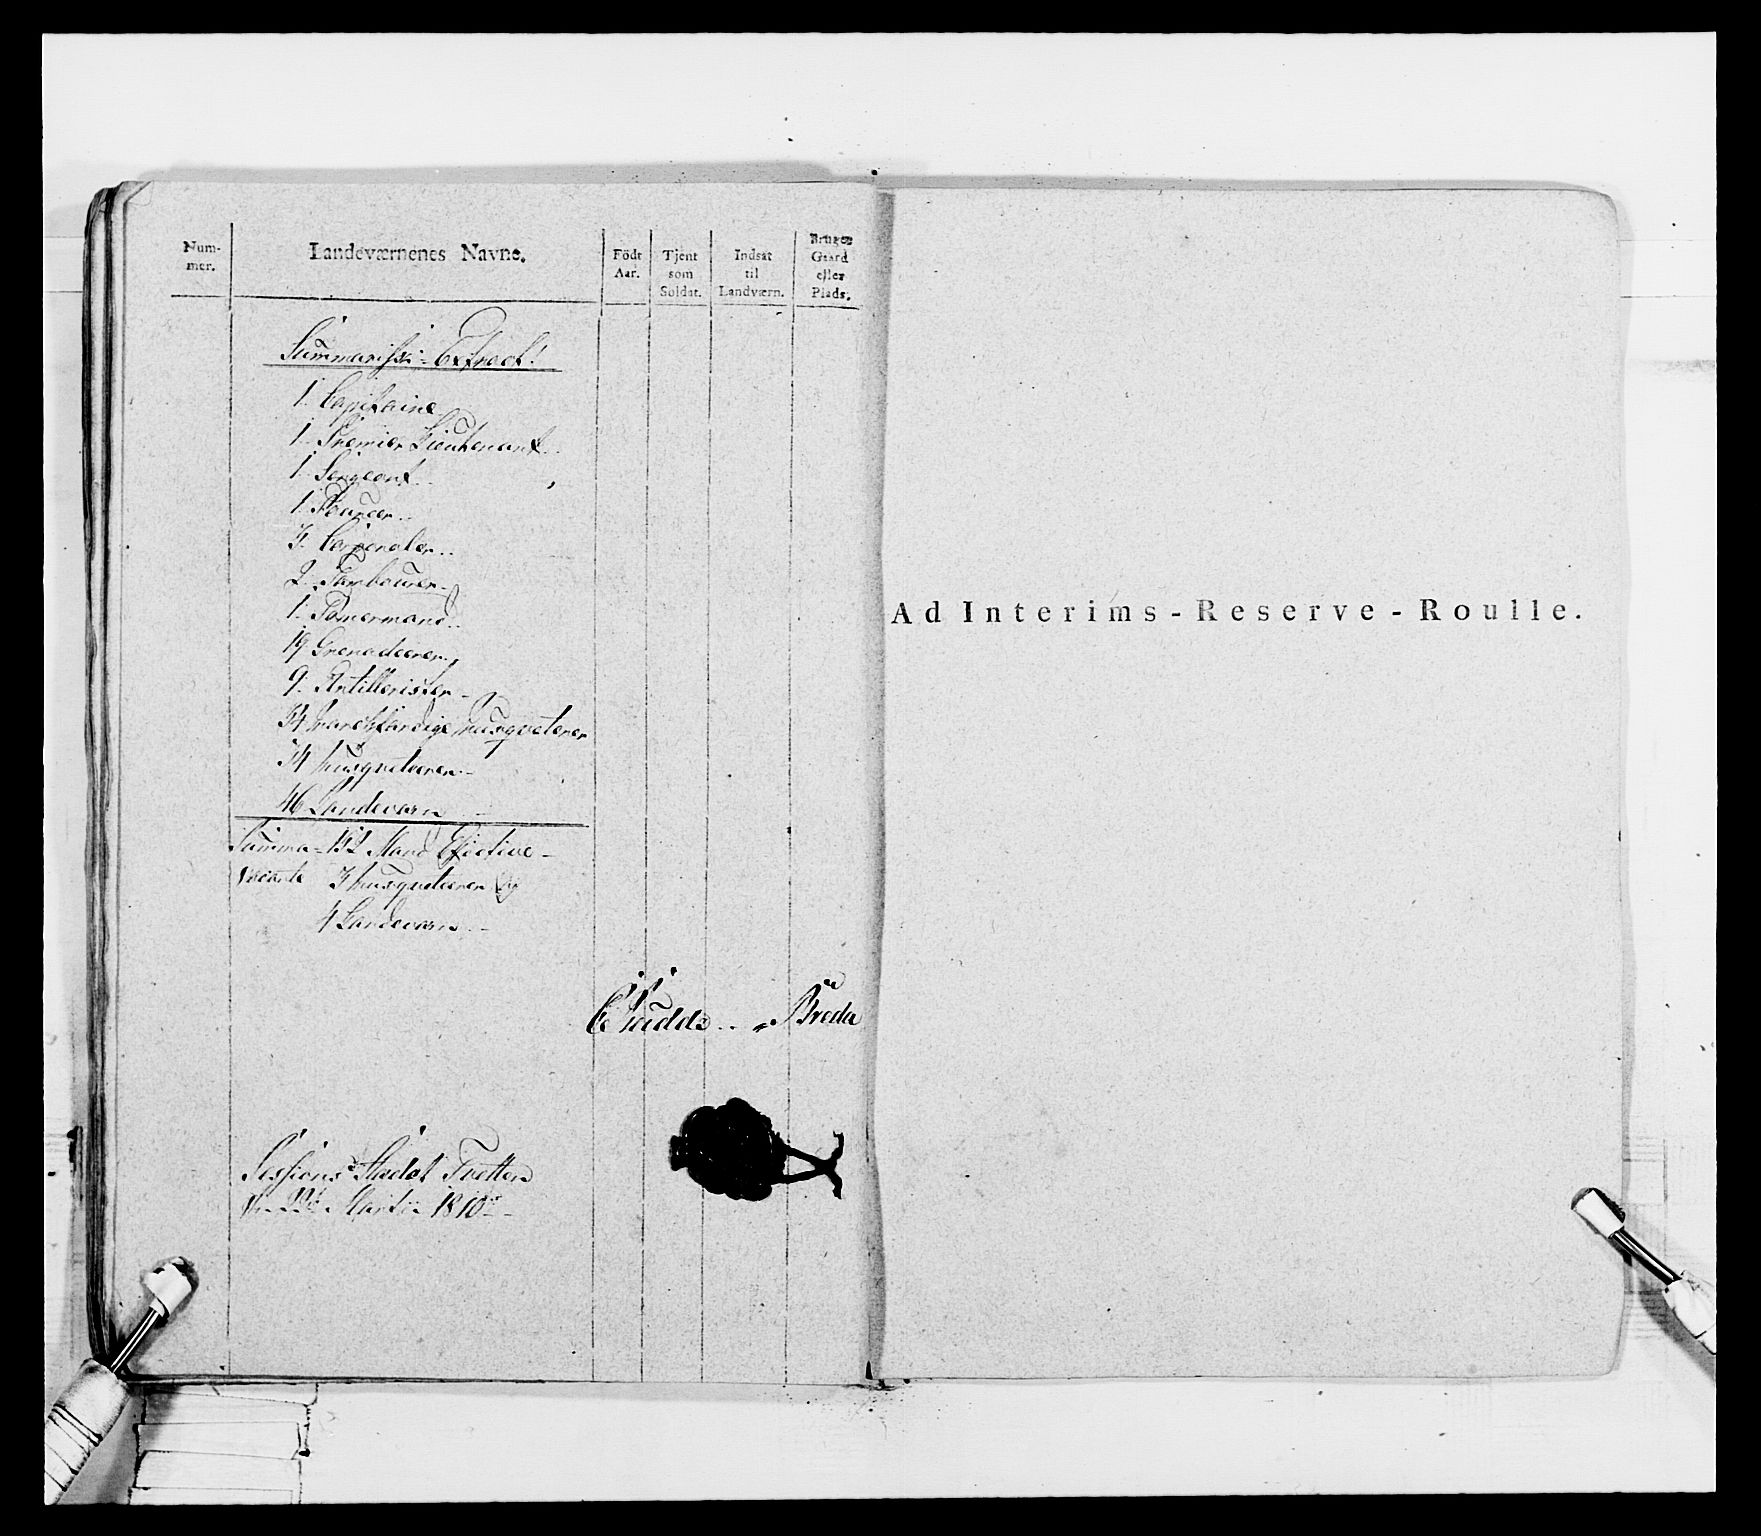 Num-
mer.
Landeværnenes Navne.
Födt
Aar.
Tjent
som
Soldat.
Indsat
til
Landværn.
Bruger
Gaard
eller
Plads.
Summarisk-Extract!
1. Capitaine
1. Premier Lieutenant..
1. Sergeant..
1. Fourer..
3. Corporaler..
2. Tambourer.
1. Tömermand..
19 Grenadeerer.
9. Artillerister.
34 Musqveterer
34 Musqveterer.
46 Landeværn
Summa-152 Mand Efective-
Vacante 3 Musqveterer og
4 Landeværn..
Breda
Sessions Stædet Tvetten
Martii 1810
Ad Interims-Reserve-Roulle.